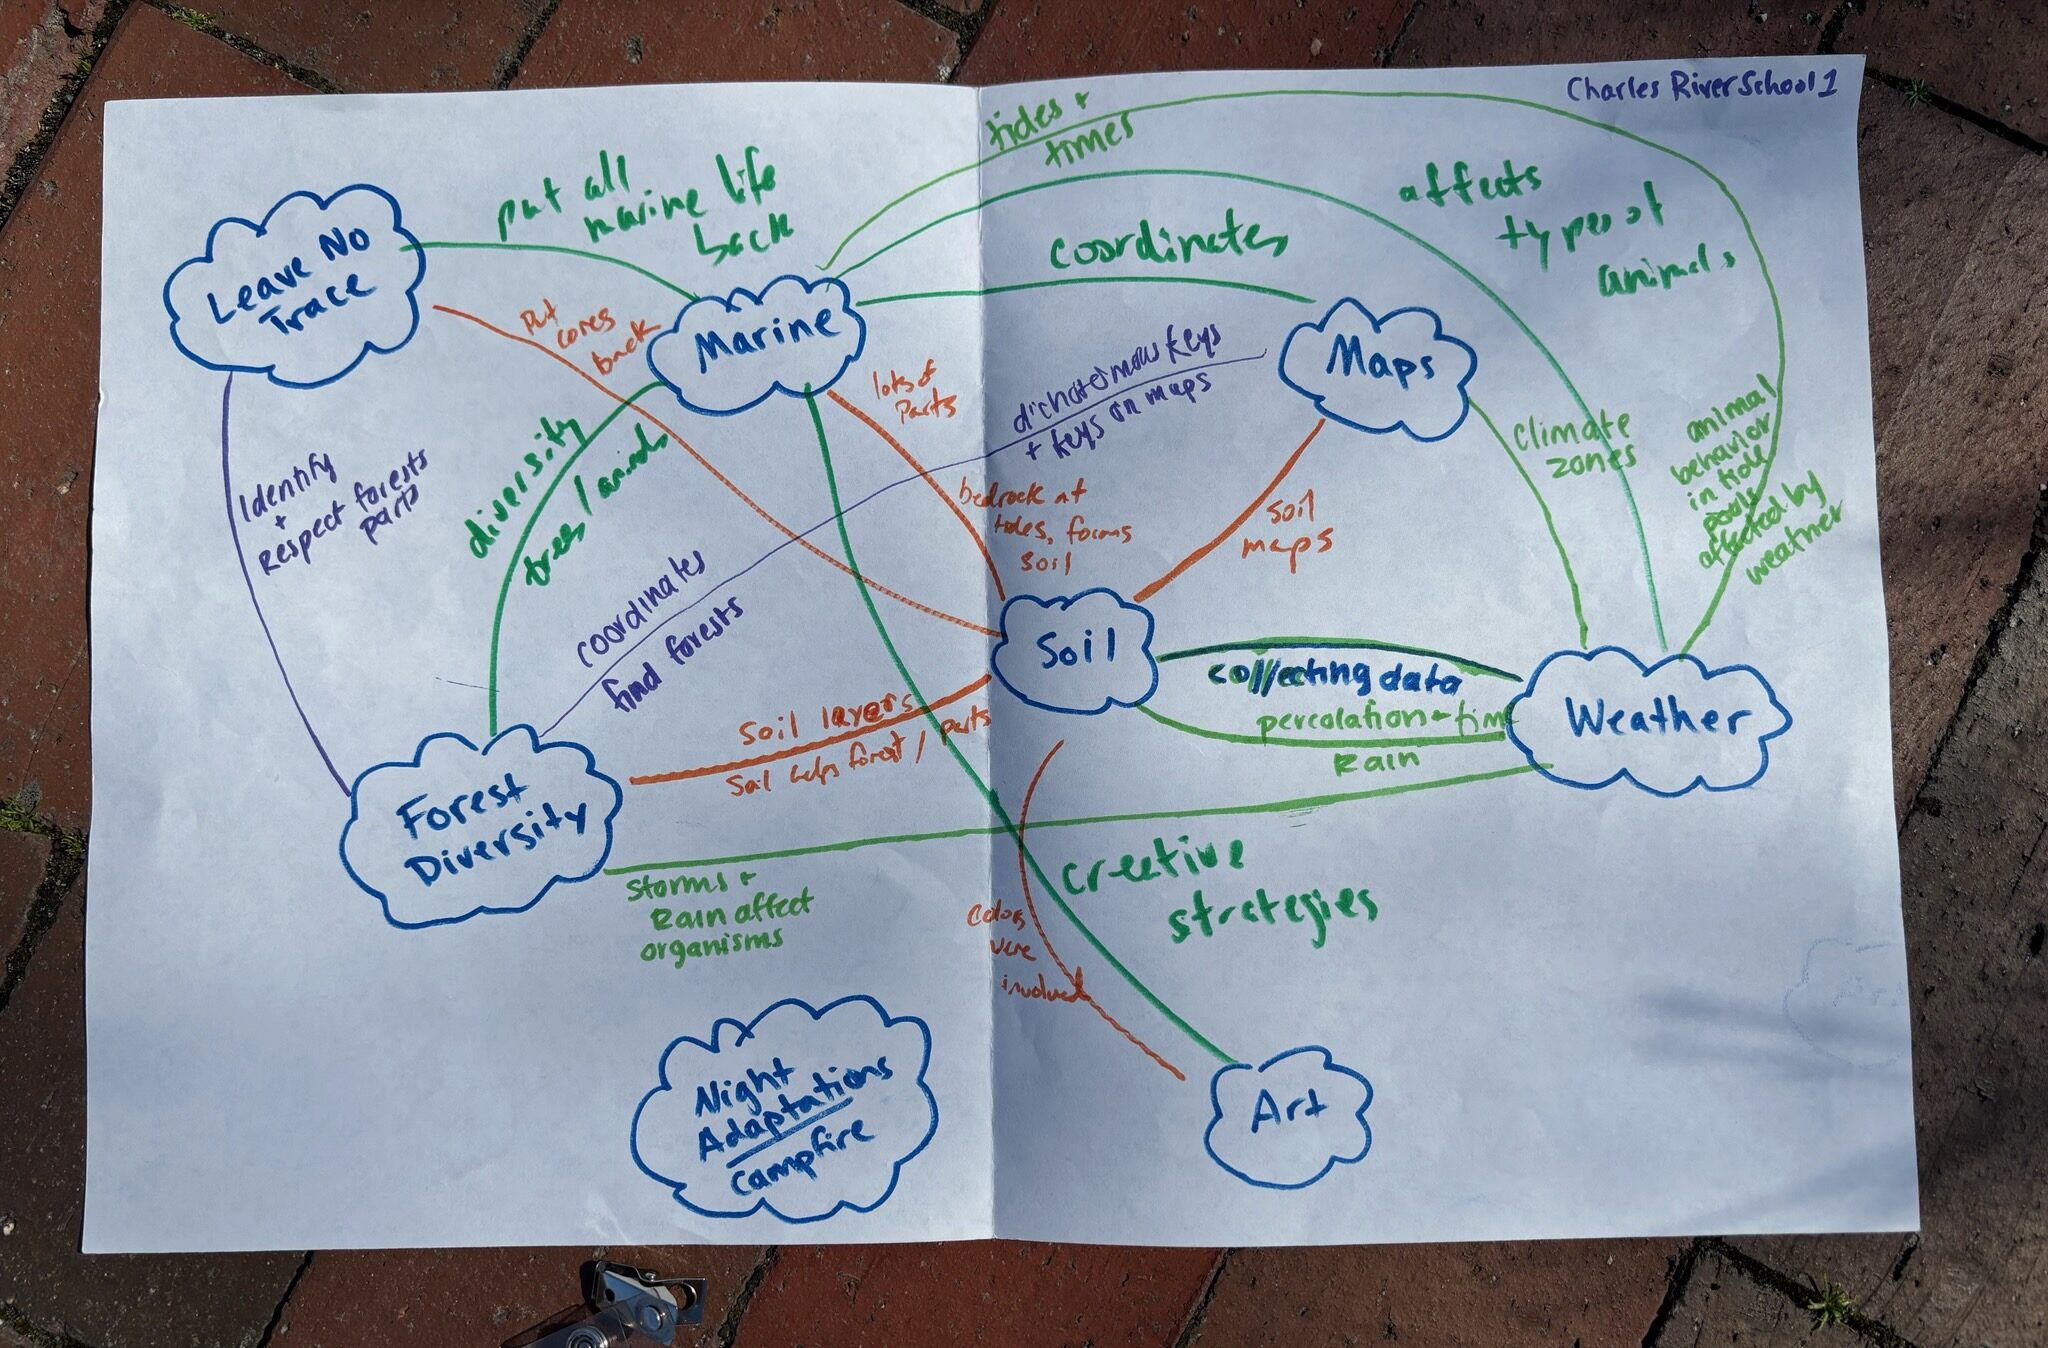 Charles River School 1
tides +
times
put all
marine life
back
affects
types of
animals
Leave No
Trace
coordinates
put
cores
back
Marine
Maps
lots of
parts
dichotomous keys
+ keys on maps
climate
zones
animal
behavior
in tide
pools
affected by
weather
Identify
+
Respect forests
parts
diversity
trees / animals
bedrock at
tides, forms
soil
soil
maps
coordinates
find forests
Soil
collecting data
percolation + tim
Rain
Weather
Soil layers
Soil helps forest / parts
Forest
Diversity
storms +
Rain affect
organisms
creative
strategies
colors
were
involved
Night
Adaptations
campfire
Art